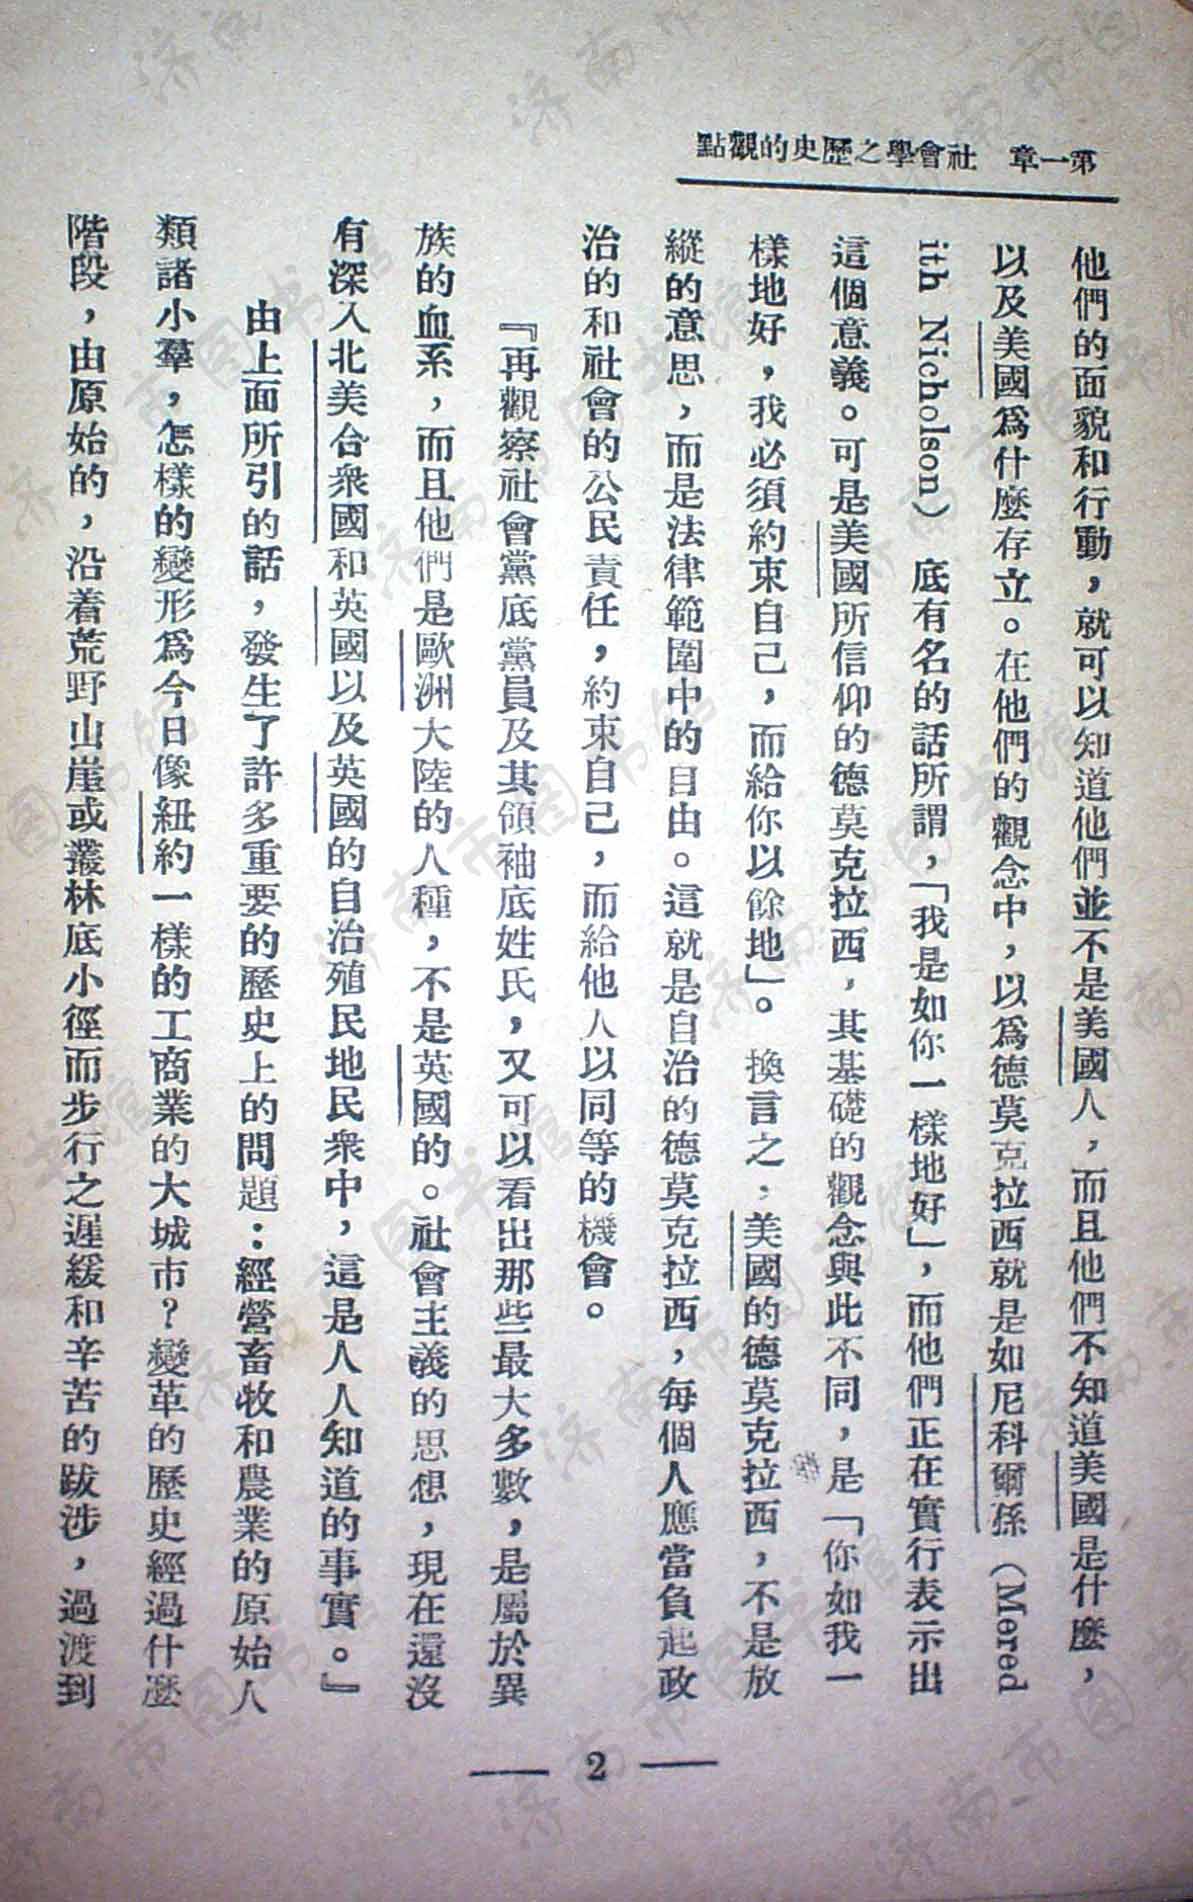 第一章　社會學之歷史的觀點
他們的面貌和行動，就可以知道他們並不是美國人，而且他們不知道美國是什麼，
以及美國爲什麼存立。在他們的觀念中，以爲德莫克拉西就是如尼科爾孫（Mered
ith Nicholson）底有名的話所謂，「我是如你一樣地好」，而他們正在實行表示出
這個意義。可是美國所信仰的德莫克拉西，其基礎的觀念與此不同，是「你如我一
樣地好，我必須約束自己，而給你以餘地」。換言之，美國的德莫克拉西，不是放
縱的意思，而是法律範圍中的自由。這就是自治的德莫克拉西，每個人應當負起政
治的和社會的公民責任，約束自己，而給他人以同等的機會。
『再觀察社會黨底黨員及其領袖底姓氏，又可以看出那些最大多數，是屬於異
族的血系，而且他們是歐洲大陸的人種，不是英國的。社會主義的思想，現在還沒
有深入北美合衆國和英國以及英國的自治殖民地民衆中，這是人人知道的事實。』
由上面所引的話，發生了許多重要的歷史上的問題：經營畜牧和農業的原始人
類諸小羣，怎樣的變形爲今日像紐約一樣的工商業的大城市？變革的歷史經過什麼
階段，由原始的，沿着荒野山崖或叢林底小徑而步行之遲緩和辛苦的跋涉，過渡到
— 2 —
济南市图书馆